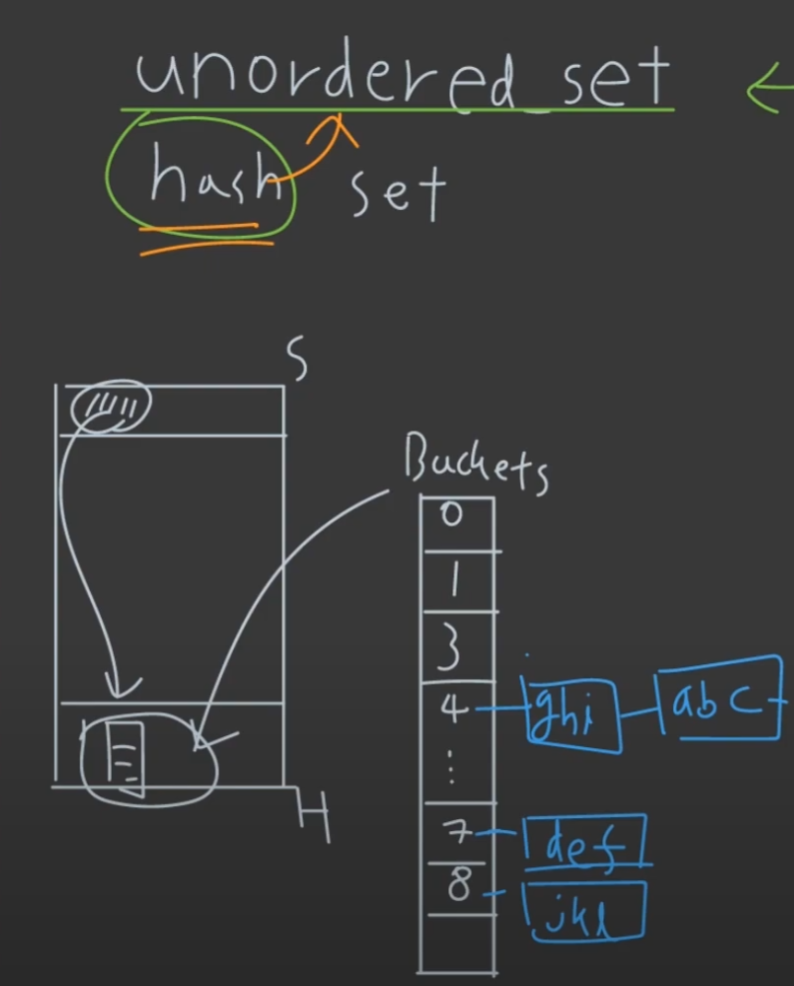 unordered_set
hash set
S
Buckets
0
1
3
4 ghi abc
⋮
7 def
8 jkl
H